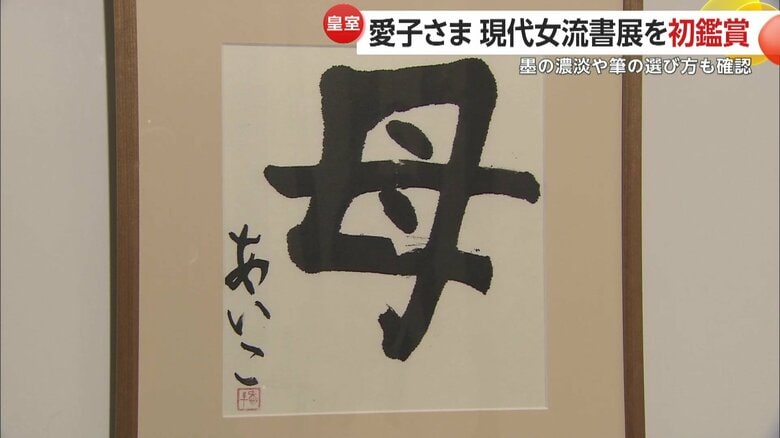 皇室
愛子さま 現代女流書展を初鑑賞
墨の濃淡や筆の選び方も確認
母
あいこ